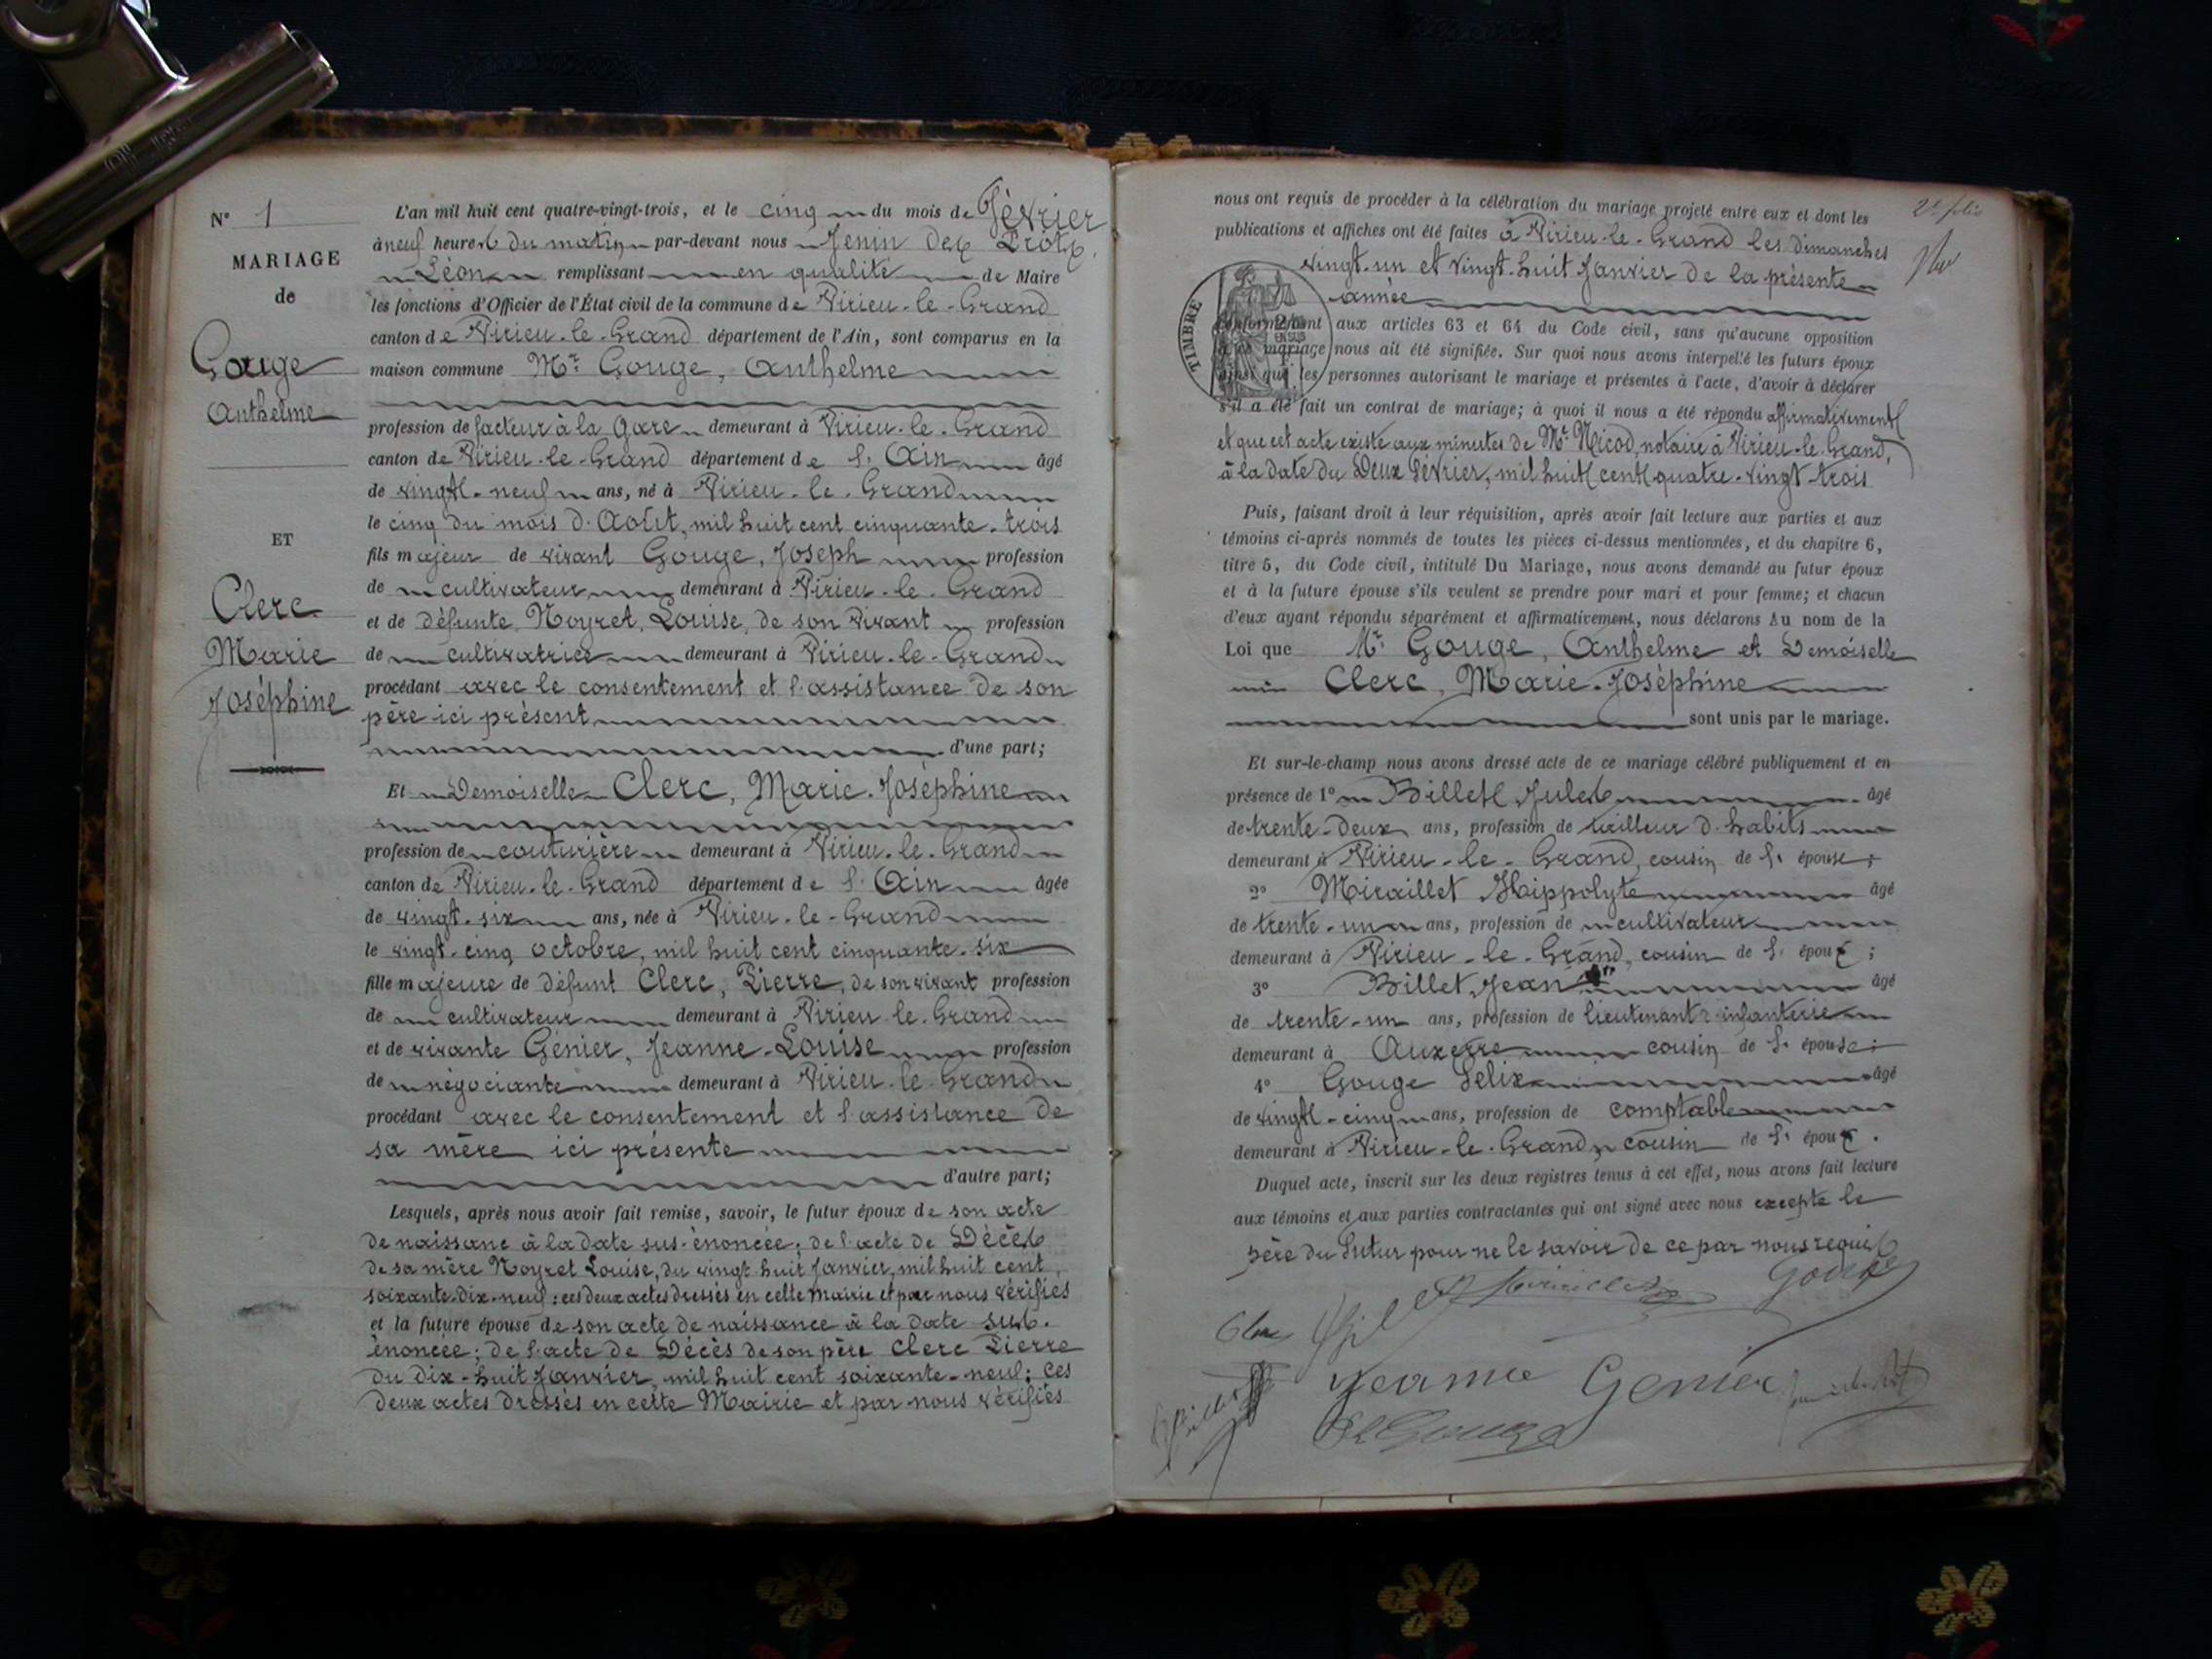 N° 1
MARIAGE
de
Gouge
Anthelme
ET
Clerc
Marie
Joséphine
L'an mil huit cent quatre-vingt-trois, et le cinq du mois de Février
à neuf heures du matin par-devant nous Jenin des Prôts,
Léon remplissant en qualité de Maire
les fonctions d'Officier de l'État civil de la commune de Virieu-le-Grand
canton de Virieu-le-Grand département de l'Ain, sont comparus en la
maison commune Mr Gouge, Anthelme
profession de facteur à la Gare demeurant à Virieu-le-Grand
canton de Virieu-le-Grand département de l'Ain âgé
de vingt-neuf ans, né à Virieu-le-Grand
le cinq du mois d'Août, mil huit cent cinquante-trois
fils majeur de vivant Gouge, Joseph profession
de cultivateur demeurant à Virieu-le-Grand
et de défunte Noyret, Louise, de son vivant profession
de cultivatrice demeurant à Virieu-le-Grand
procédant avec le consentement et l'assistance de son
père ici présent
d'une part;
Et Demoiselle Clerc, Marie-Joséphine
profession de couturière demeurant à Virieu-le-Grand
canton de Virieu-le-Grand département de l'Ain âgée
de vingt-six ans, née à Virieu-le-Grand
le vingt-cinq octobre, mil huit cent cinquante-six
fille majeure de défunt Clerc, Pierre, de son vivant profession
de cultivateur demeurant à Virieu-le-Grand
et de vivante Génier, Jeanne-Louise profession
de négociante demeurant à Virieu-le-Grand
procédant avec le consentement et l'assistance de
sa mère ici présente
d'autre part;
Lesquels, après nous avoir fait remise, savoir, le futur époux de son acte
de naissanc à la date sus-énoncée; de l'acte de Décès
de sa mère Noyret Louise, du vingt huit Janvier, mil huit cent
soixante-dix-neuf: ces deux actes dressés en cette mairie et par nous vérifiés
et la future épouse de son acte de naissance à la date sus-
énoncée; de l'acte de Décès de son père Clerc Pierre
du dix-huit Janvier, mil huit cent soixante-neuf: ces
deux actes dressés en cette Mairie et par nous vérifiés
2e folio
nous ont requis de procéder à la célébration du mariage projeté entre eux et dont les
publications et affiches ont été faites à Virieu-le-Grand les dimanches
vingt-un et vingt-huit Janvier de la présente
année
TIMBRE
conformément aux articles 63 et 64 du Code civil, sans qu'aucune opposition
à ce mariage nous ait été signifiée. Sur quoi nous avons interpellé les futurs époux
ainsi que les personnes autorisant le mariage et présentes à l'acte, d'avoir à déclarer
s'il a été fait un contrat de mariage; à quoi il nous a été répondu affirmativement
et que cet acte existe aux minutes de Me Nicod, notaire à Virieu-le-Grand,
à la date du Deux Février, mil huit cent quatre-vingt-trois
Puis, faisant droit à leur réquisition, après avoir fait lecture aux parties et aux
témoins ci-après nommés de toutes les pièces ci-dessus mentionnées, et du chapitre 6,
titre 5, du Code civil, intitulé Du Mariage, nous avons demandé au futur époux
et à la future épouse s'ils veulent se prendre pour mari et pour femme; et chacun
d'eux ayant répondu séparément et affirmativement, nous déclarons Au nom de la
Loi que Mr Gouge, Anthelme et Demoiselle
Clerc, Marie-Joséphine
sont unis par le mariage.
Et sur-le-champ nous avons dressé acte de ce mariage célébré publiquement et en
présence de 1° Billet Jules âgé
de trente-deux ans, profession de tailleur d'habits
demeurant à Virieu-le-Grand, cousin de l'épouse;
2° Miraillet Hippolyte âgé
de trente-un ans, profession de cultivateur
demeurant à Virieu-le-Grand, cousin de l'époux;
3° Billet, Jean âgé
de trente-un ans, profession de lieutenant d'infanterie
demeurant à Auxerre cousin de l'épouse;
4° Gouge Félix âgé
de vingt-cinq ans, profession de comptable
demeurant à Virieu-le-Grand, cousin de l'époux.
Duquel acte, inscrit sur les deux registres tenus à cet effet, nous avons fait lecture
aux témoins et aux parties contractantes qui ont signé avec nous excepté le
père du futur pour ne le savoir de ce par nous requis
Gouge
Jeanne Genier